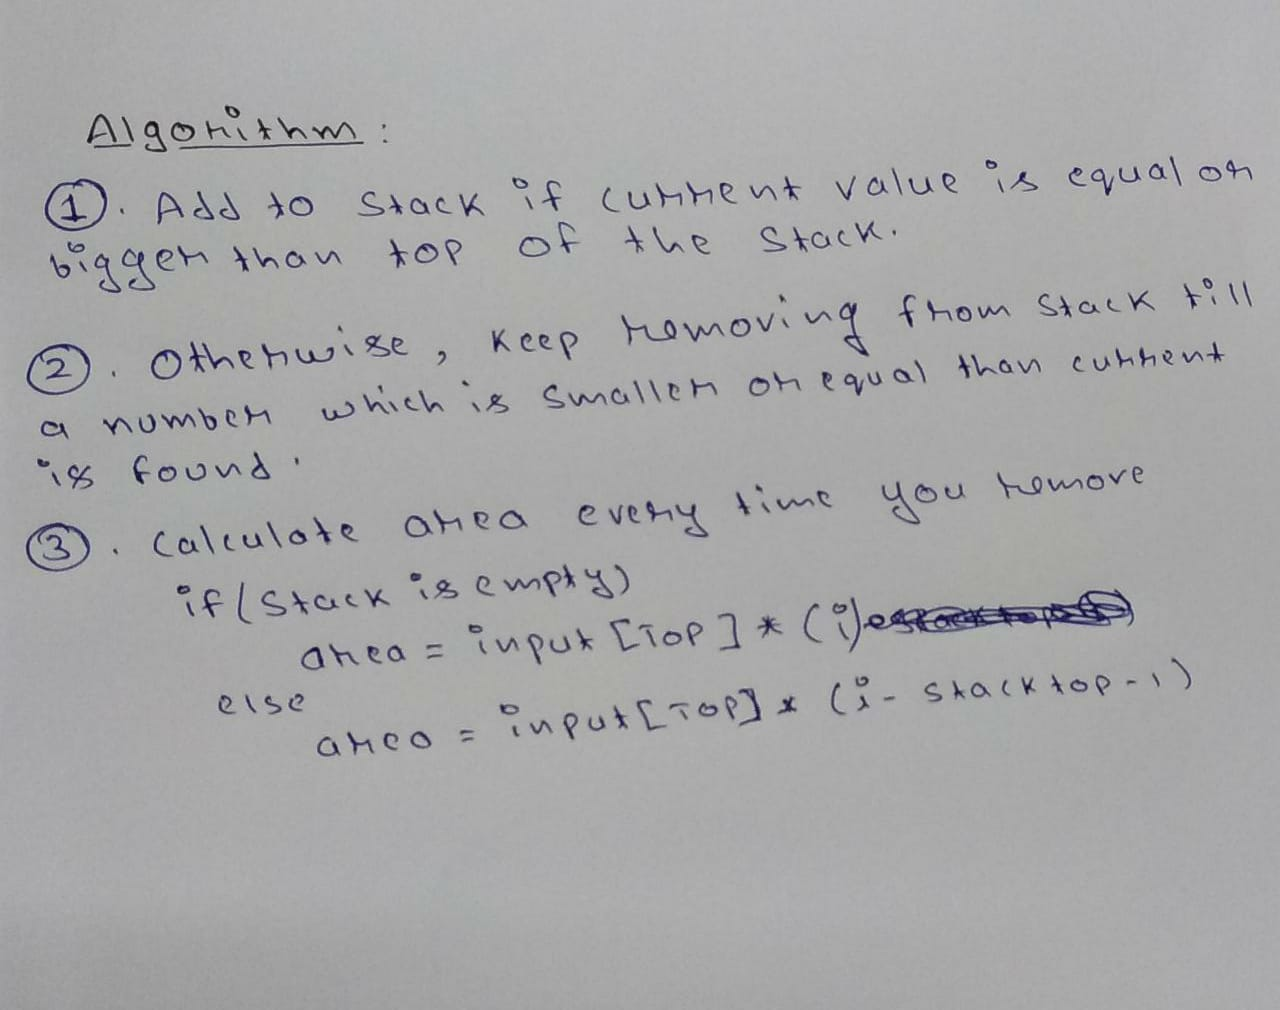 Algorithm:
①. Add to stack if current value is equal or
bigger than top of the stack.
②. Otherwise, keep removing from stack till
a number which is smaller or equal than current
is found.
③. Calculate area every time you remove
if(stack is empty)
area = input [Top] * (i)
else
area = input[Top] * (i - stacktop - 1)